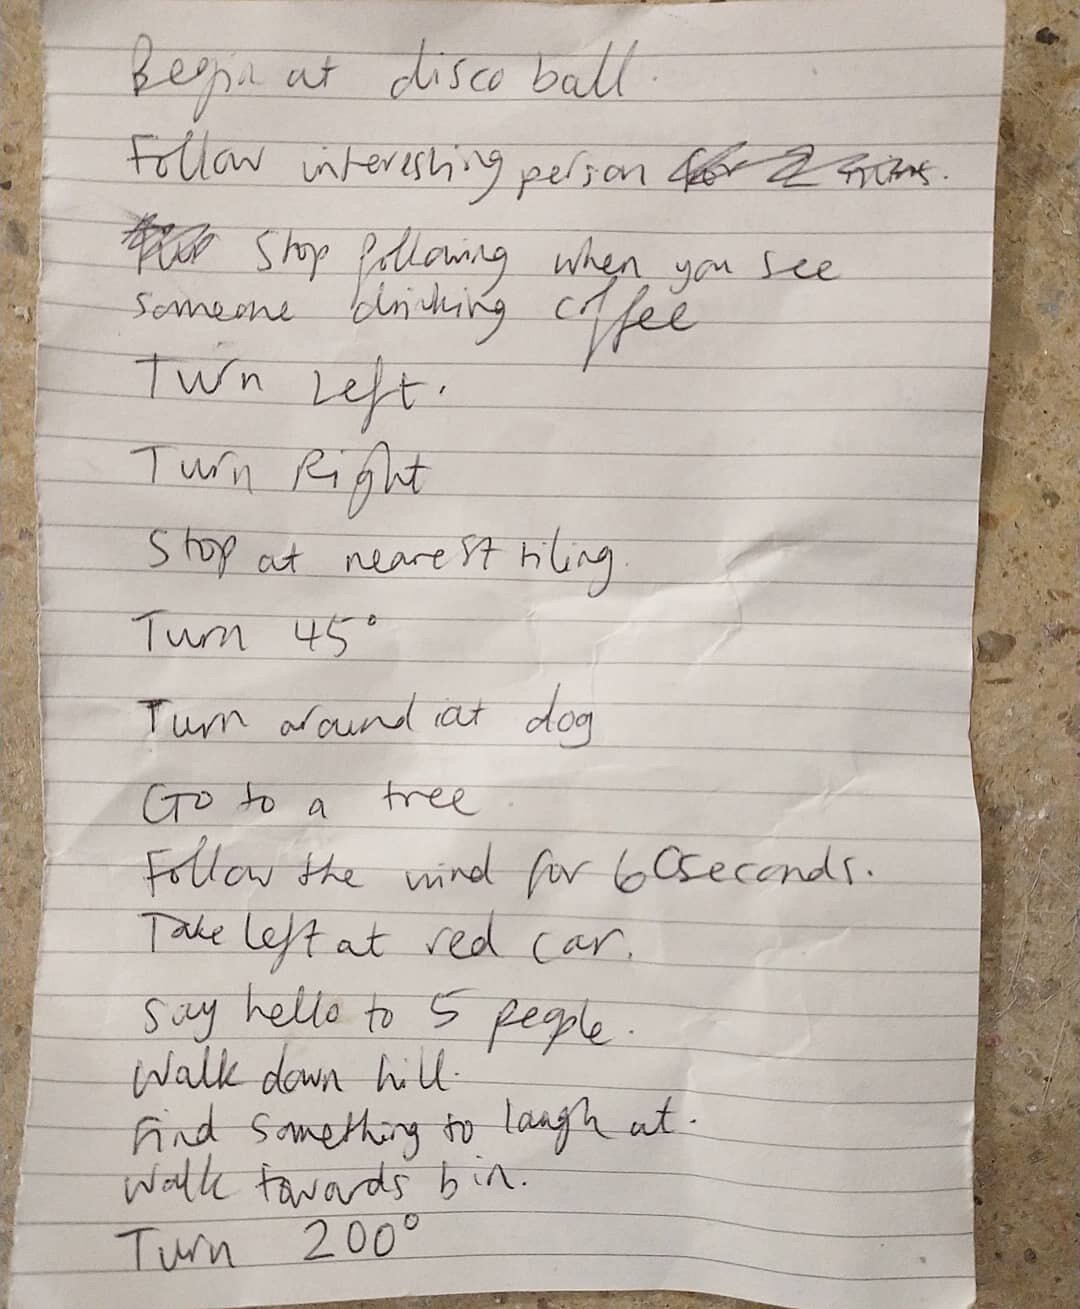 Begin at disco ball.
Follow interesting person for 2 mins.
Stop following when you see
someone drinking coffee
Turn Left.
Turn Right
Stop at nearest tiling.
Turn 45°
Turn around at dog
Go to a tree
Follow the wind for 60 seconds.
Take left at red car.
Say hello to 5 people.
Walk down hill.
Find something to laugh at.
Walk towards bin.
Turn 200°